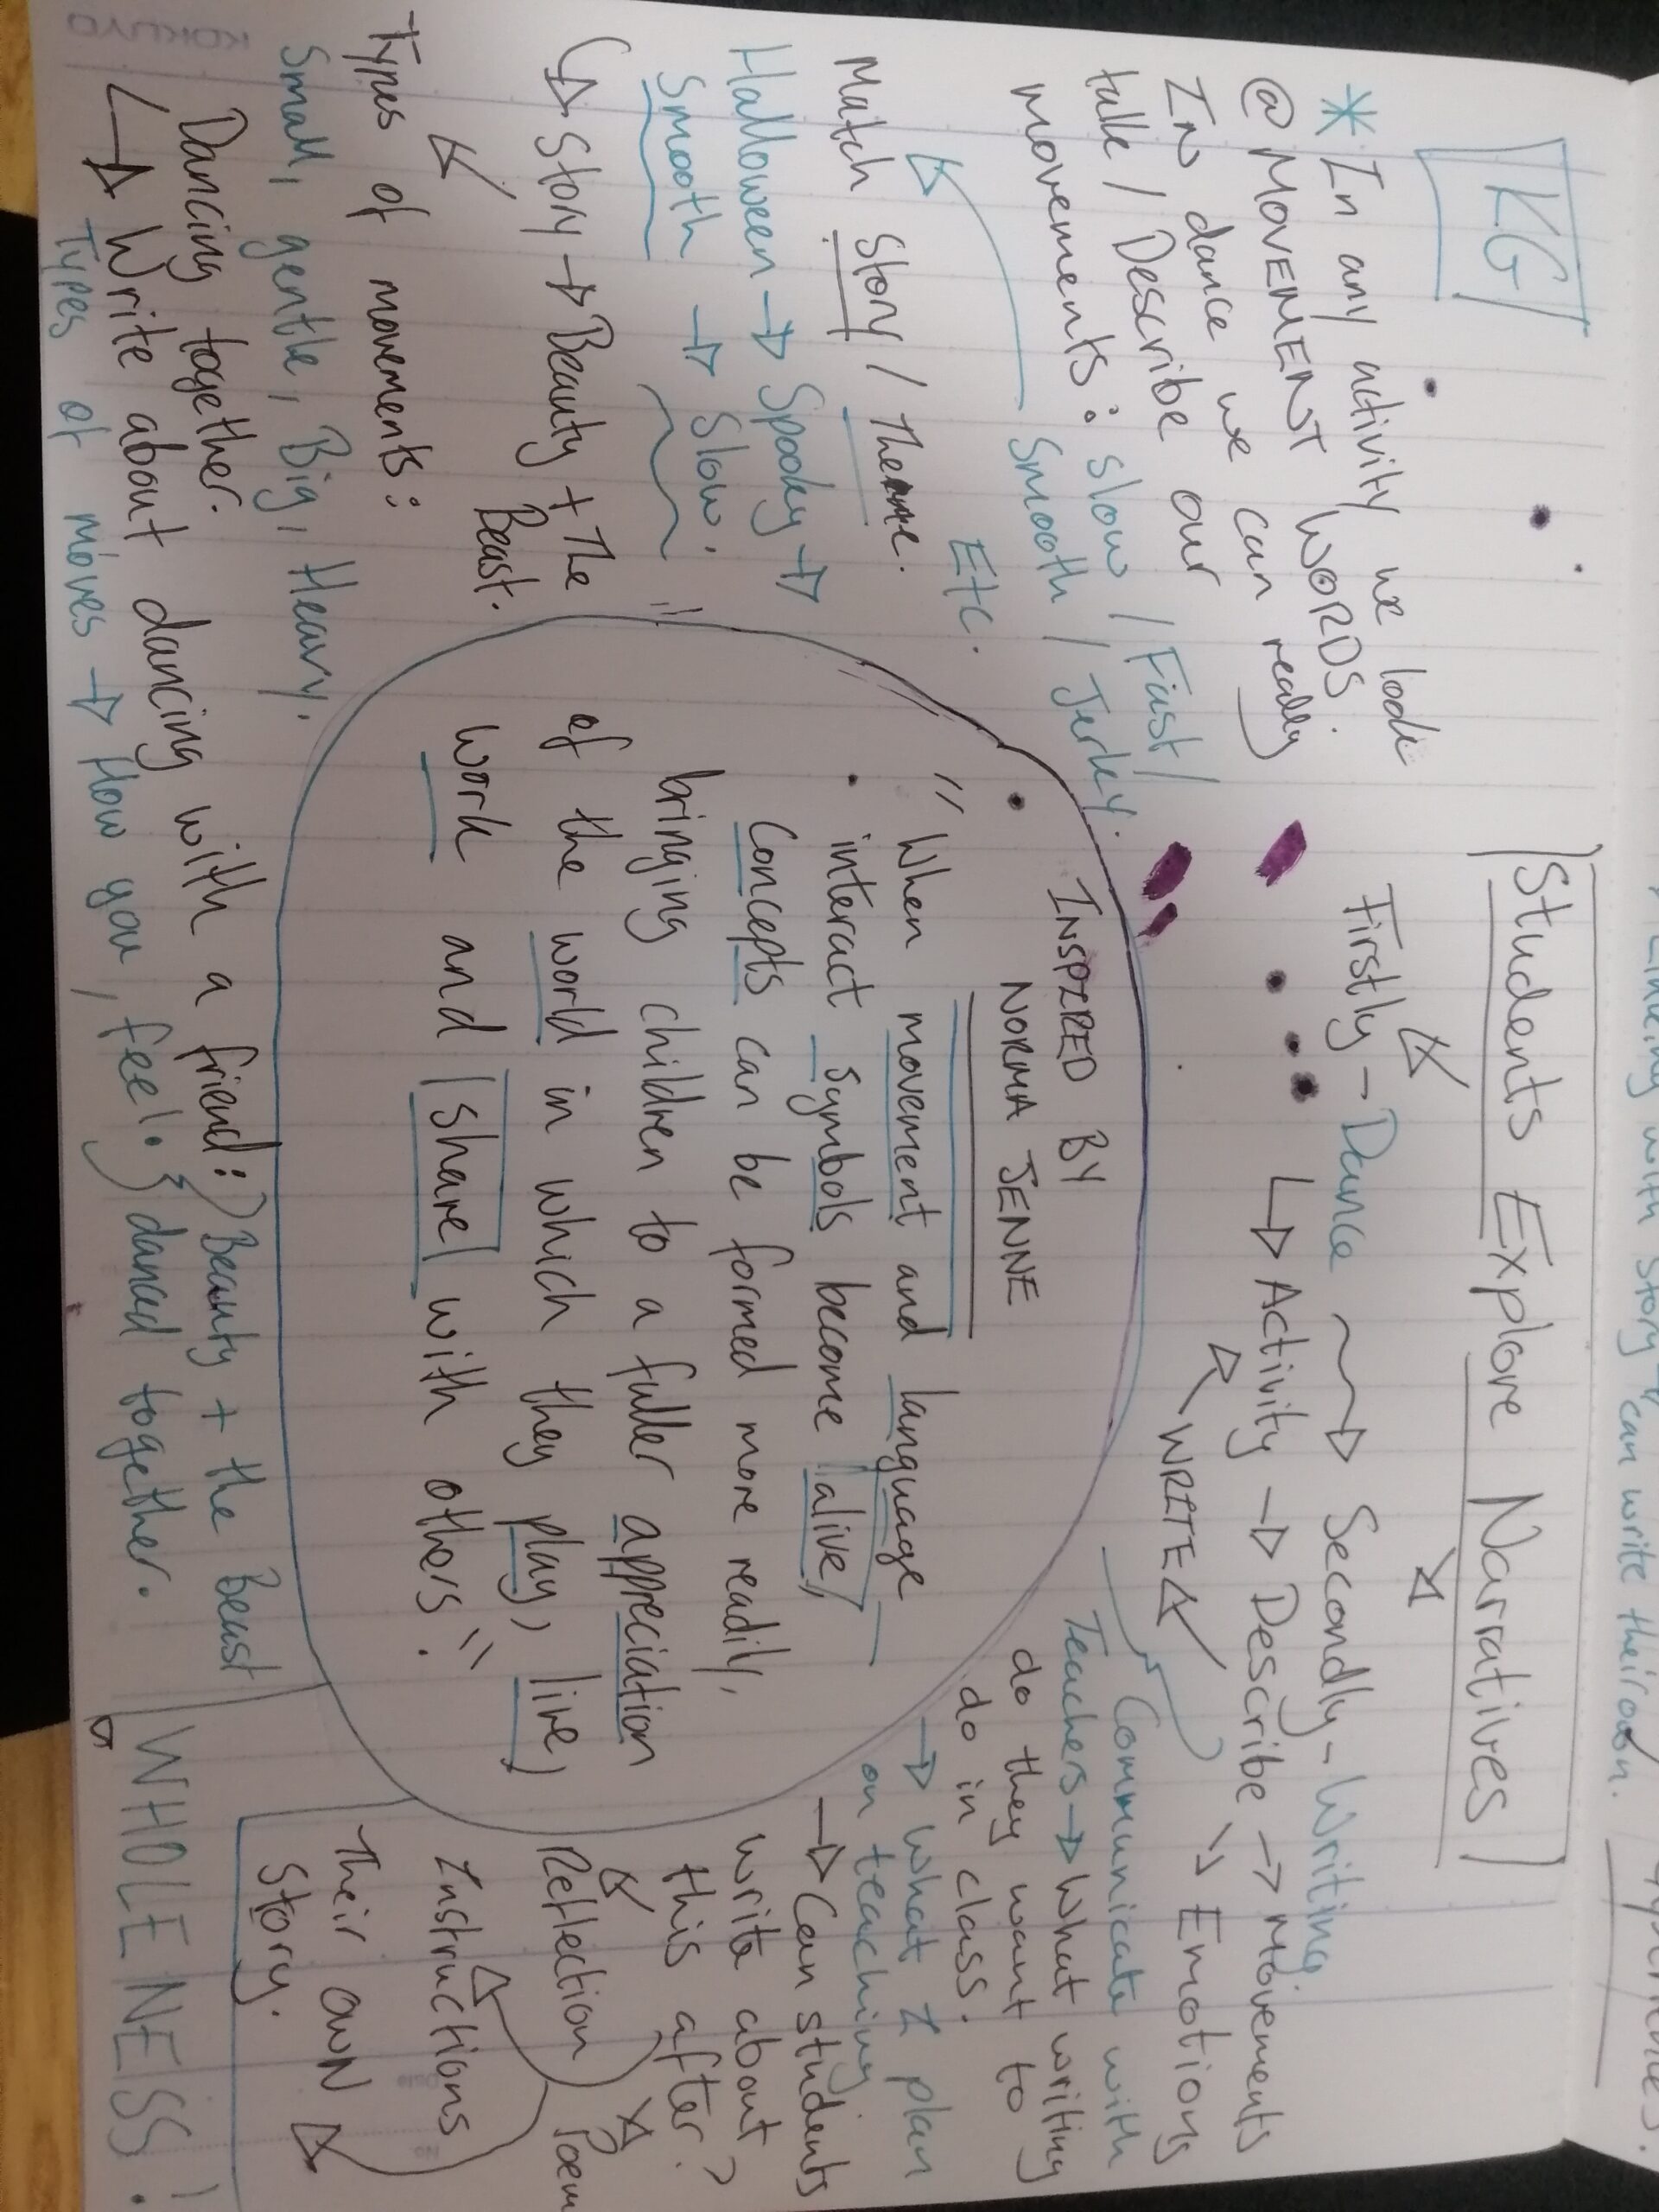 Linking with story & can write their own.
experiences.
KG
Students Explore Narratives
Firstly - Dance → Secondly - Writing.
↳ Activity → Describe → Movements
↘ Emotions
WRITE
* In any activity we look
@ MOVEMENT WORDS
In dance we can really
talk / Describe our
movements: slow / Fast /
Smooth / Jerky.
Etc.
Match Story / Theme.
Halloween → Spooky →
Smooth → Slow.
↳ Story → Beauty + The
Beast.
Types of movements:
Small, gentle, Big, Heavy.
Dancing together.
↳ Write about dancing with a friend:) Beauty + the Beast
Types of moves → How you feel:} danced together.
INSPIRED BY
NORMA JENNE
"When movement and language
interact symbols become alive,
concepts can be formed more readily,
bringing children to a fuller appreciation
of the world in which they play, live,
work and share with others."
Communicate with
Teachers → What writing
do they want to
do in class.
→ What I plan
on teaching
→ Can students
write about
this after?
Reflection Poem
Instructions
Their own
Story.
WHOLENESS!
KOKUYO
Date
No